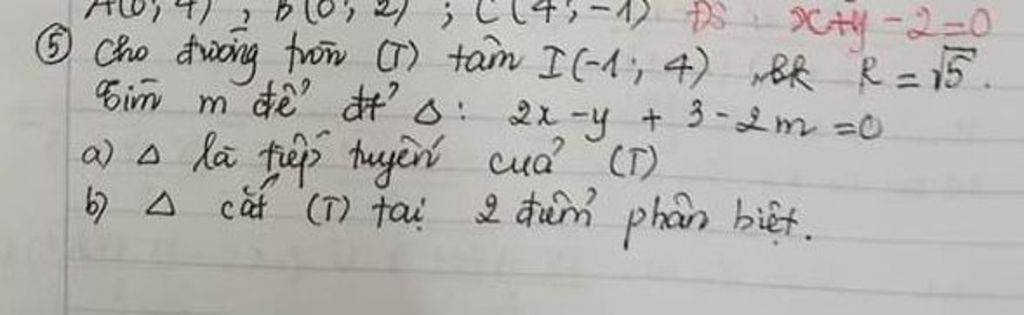 A(0; 4) ; B(0; 2) ; C(4; -1) ĐS: x+y-2=0
⑤ Cho đường tròn (T) tâm I(-1; 4) , BK R = √5.
Tìm m để đt Δ: 2x - y + 3 - 2m = 0
a) Δ là tiếp tuyến của (T)
b) Δ cắt (T) tại 2 điểm phân biệt.